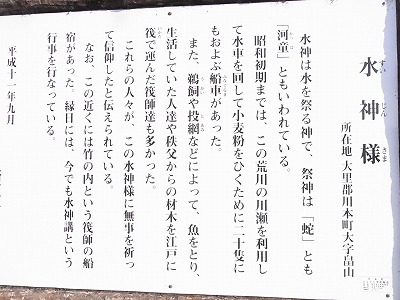 水神様
すいじんさま
所在地 大里郡川本町大字畠山
水神は水を祭る神で、祭神は「蛇」とも
「河童」ともいわれている。
かっぱ
昭和初期までは、この荒川の川瀬を利用し
て水車を回して小麦粉をひくために二十隻に
もおよぶ船車があった。
また、鵜飼や投網などによって、魚をとり、
うかい とあみ
生活していた人達や秩父からの材木を江戸に
筏で運んだ筏師達も多かった。
いかだ
これらの人々が、この水神様に無事を祈っ
て信仰したと伝えられている。
なお、この近くには竹の内という筏師の船
宿があった。縁日には、今でも水神講という
行事を行なっている。
平成十一年九月